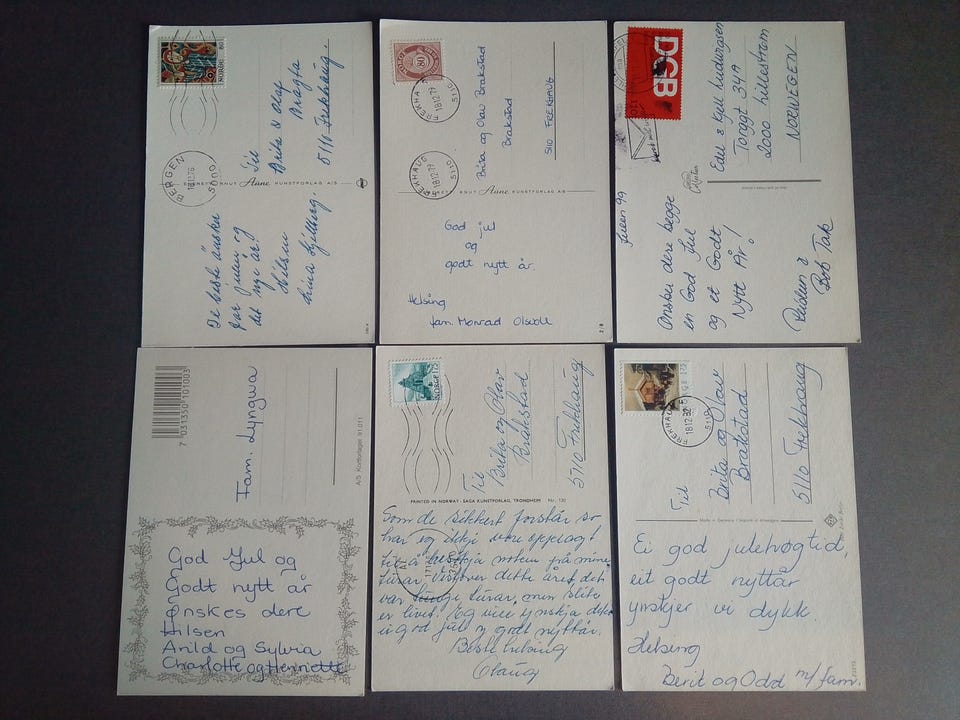 NORGE 80
BERGEN
5000
18.12.76
Til
Brita & Olav
5110 Frekhaug.
KNUT Aune KUNSTFORLAG A/S
De beste ønsker
for julen og
det nye år!
Hilsen
80
FREKHAUG
18.12.79
5110
FREKHAUG
18.12.79
5110
Brita og Olav Brakstad
Brakstad
5110 FREKHAUG
Aune KUNSTFORLAG A/S
God jul
og
godt nytt år.
Helsing
fam. Monrad
DGB
Edel & Kjell Ludvigsen
Torggt 34A
2000 Lillestrøm
NORWEGEN
Ønsker dere begge
en God Jul
og et Godt
Nytt År!
&
Bob Tak
7 031350 101003
Fam. Lyngwa
A/S Kortforlaget 91.011
God Jul og
Godt nytt år
Ønskes dere
Hilsen
Arild og Sylvia
Charlotte og Henriette
NORGE 125
Til
Brita og Olav
Brakstad
5110 Frekhaug
PRINTED IN NORWAY - SAGA KUNSTFORLAG, TRONDHEIM Nr. 130
Som de sikkert forstår so
har eg ikkje vore opplagt
til å
dette året, det
var
er livet. Eg vil ynskja dykk
ei god jul og godt nyttår.
Beste helsing
Olaug
FREKHAUG
18.12.92
5110
Til
Brita og Olav
Brakstad
5110 Frekhaug
Ei god julehøgtid,
eit godt nyttår
ynskjer vi dykk.
Helsing
Berit og Odd m/fam.